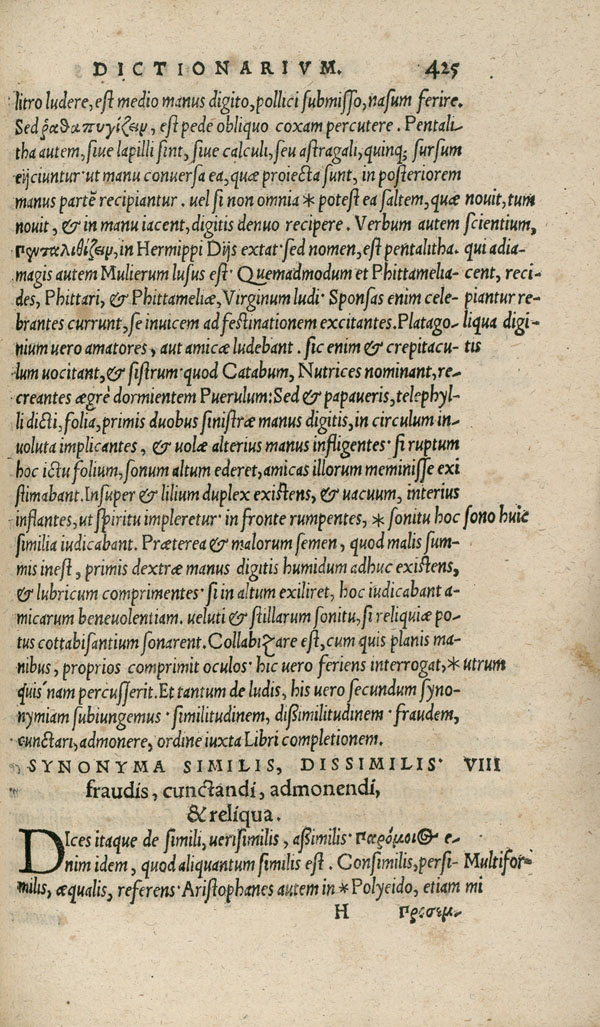 DICTIONARIVM. 425
litro ludere, est medio manus digito, pollici submisso, nasum ferire.
Sed ῥαθαπυγίζειν, est pede obliquo coxam percutere. Pentali-
tha autem, siue lapilli sint, siue calculi, seu astragali, quinq; sursum
eijciuntur· ut manu conuersa ea, quæ proiecta sunt, in posteriorem
manus partē recipiantur. uel si non omnia * potest ea saltem, quæ
nouit, & in manu iacent, digitis denuo recipere. Verbum autem
πενταλιθίζειν, in Hermippi Dijs extat· sed nomen, est pentalitha.
magis autem Mulierum lusus est· Quemadmodum et Phittamelia-
des, Phittari, & Phittameliæ, Virginum ludi· Sponsas enim cele-
brantes currunt, se inuicem ad festinationem excitantes. Platago-
nium uero amatores, aut amicæ ludebant. sic enim & crepitacu-
lum uocitant, & sistrum· quod Catabum, Nutrices nominant, re-
creantes ægrè dormientem Puerulum: Sed & papaueris, telephyl-
li dicti, folia, primis duobus sinistræ manus digitis, in circulum in-
uoluta implicantes, & uolæ alterius manus infligentes· si ruptum
hoc ictu folium, sonum altum ederet, amicas illorum meminisse exi
stimabant. Insuper & lilium duplex existens, & uacuum, interius
inflantes, ut spiritu impleretur· in fronte rumpentes, * sonitu hoc
similia iudicabant. Præterea & malorum semen, quod malis sum-
mis inest, primis dextræ manus digitis humidum adhuc existens,
& lubricum comprimentes· si in altum exiliret, hoc iudicabant a-
micarum beneuolentiam. ueluti & stillarum sonitu, si reliquiæ po-
tus cottabisantium sonarent. Collabizare est, cum quis planis ma-
nibus, proprios comprimit oculos· hic uero feriens interrogat, * utrum
quis nam percusserit. Et tantum de ludis, his uero secundum syno-
nymiam subiungemus· similitudinem, dißimilitudinem· fraudem,
cunctari, admonere, ordine iuxta Libri completionem.
nouit, tum
scientium,
qui adia-
cent, reci-
piantur re-
liqua digi-
tis
sono huic
SYNONYMA SIMILIS, DISSIMILIS· VIII
fraudis, cunctandi, admonendi,
& reliqua.
DIces itaque de simili, uerisimilis, aßimilis· παρόμοιος e-
nim idem, quod aliquantum similis est. Consimilis, persi-
milis, æqualis, referens· Aristophanes autem in * Polyeido, etiam
Multifor-
mi
H προσεμ-